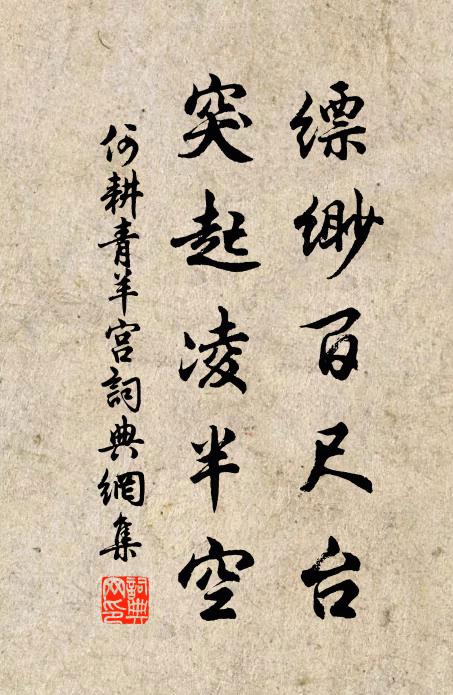 缥缈百尺台
突起凌半空
何耕青羊宫詞典網集
詞典网印